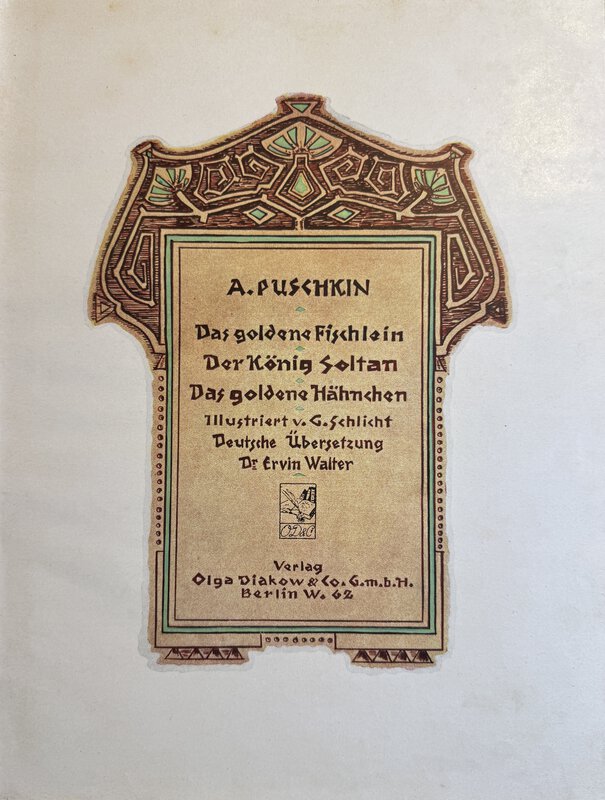 A. PUSCHKIN
Das goldene Fischlein
Der König Soltan
Das goldene Hähnchen
Illustriert v. G. Schlicht
Deutsche Übersetzung
Dr Ervin Walter
O.D&C
Verlag
Olga Diakow & Co. G.m.b.H.
Berlin W. 62